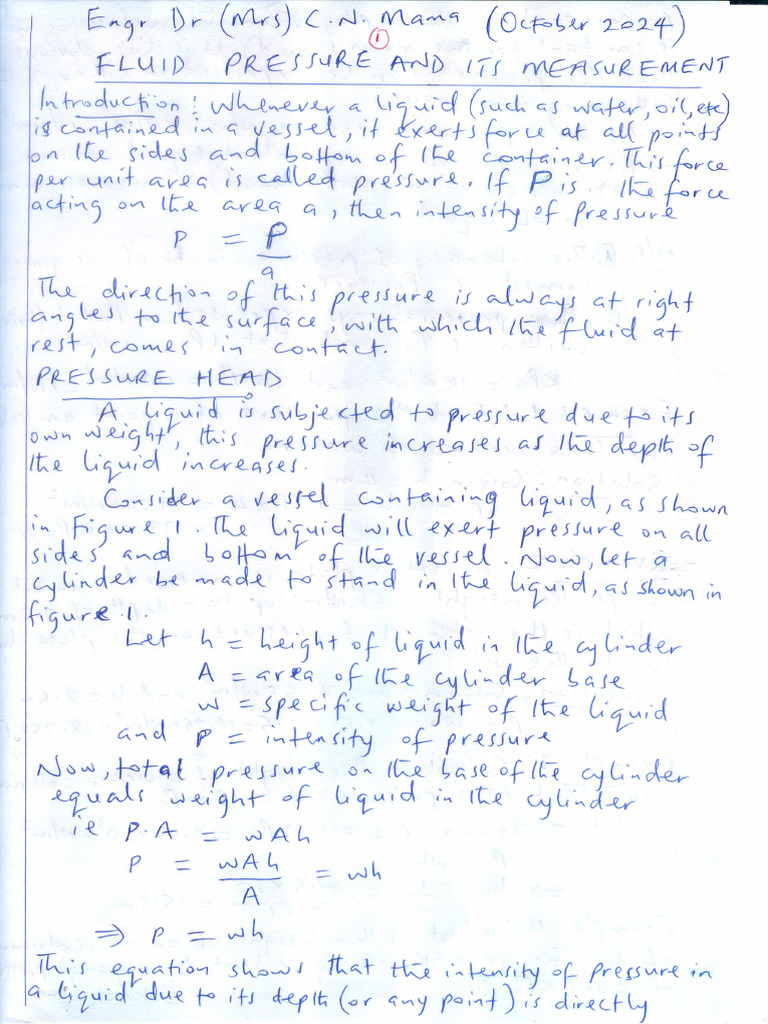 Engr Dr (Mrs) C. N. Mama (October 2024)
1
FLUID PRESSURE AND ITS MEASUREMENT
Introduction: Whenever a liquid (such as water, oil, etc)
is contained in a vessel, it exerts force at all points
on the sides and bottom of the container. This force
per unit area is called pressure. If P is the force
acting on the area a, then intensity of pressure
p = P
a
The direction of this pressure is always at right
angles to the surface, with which the fluid at
rest, comes in contact.
PRESSURE HEAD
A liquid is subjected to pressure due to its
own weight, this pressure increases as the depth of
the liquid increases.
Consider a vessel containing liquid, as shown
in Figure 1. The liquid will exert pressure on all
sides and bottom of the vessel. Now, let a
cylinder be made to stand in the liquid, as shown in
figure 1.
Let h = height of liquid in the cylinder
A = area of the cylinder base
w = specific weight of the liquid
and p = intensity of pressure
Now, total pressure on the base of the cylinder
equals weight of liquid in the cylinder
ie p.A = wAh
p = wAh = wh
A
⇒ p = wh
This equation shows that the intensity of pressure in
a liquid due to its depth (or any point) is directly